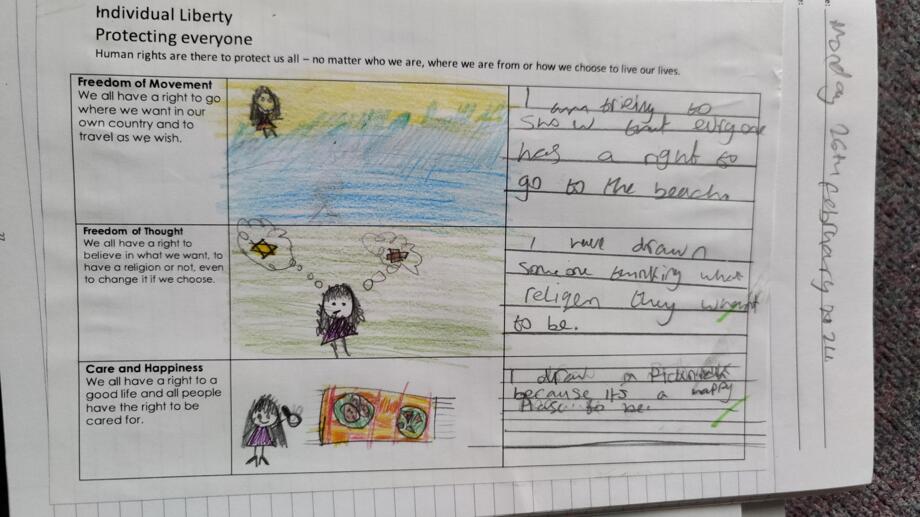 Individual Liberty
Protecting everyone
Human rights are there to protect us all – no matter who we are, where we are from or how we choose to live our lives.
Freedom of Movement
We all have a right to go
where we want in our
own country and to
travel as we wish.
I am trieing to
show that
has a right to
go to the beach.
Freedom of Thought
We all have a right to
believe in what we want, to
have a religion or not, even
to change it if we choose.
I have drawn
someone thinking what
religen they
to be.
Care and Happiness
We all have a right to a
good life and all people
have the right to be
cared for.
I draw a
because it's a happy
to be.
Monday 26th February